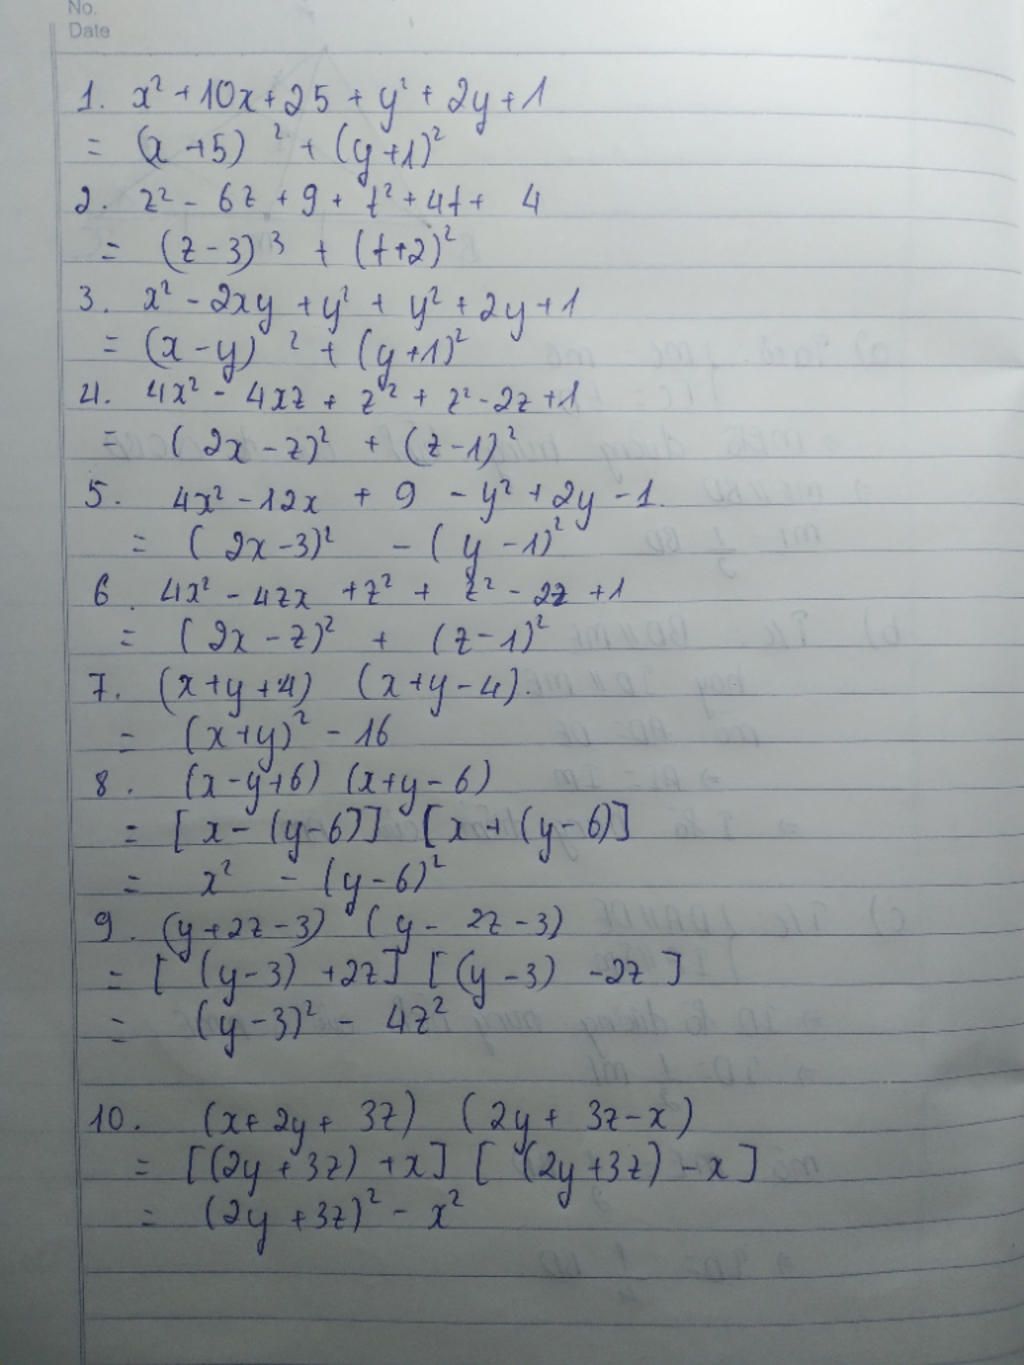 No.
Date
1. x² + 10x + 25 + y² + 2y + 1
= (x + 5)² + (y + 1)²
2. z² - 6z + 9 + t² + 4t + 4
= (z - 3)³ + (t + 2)²
3. x² - 2xy + y² + y² + 2y + 1
= (x - y)² + (y + 1)²
4. 4x² - 4xz + z² + z² - 2z + 1
= (2x - z)² + (z - 1)²
5. 4x² - 12x + 9 - y² + 2y - 1.
= (2x - 3)² - (y - 1)²
6. 4x² - 4zx + z² + z² - 2z + 1
= (2x - z)² + (z - 1)²
7. (x + y + 4) (x + y - 4).
= (x + y)² - 16
8. (x - y + 6) (x + y - 6)
= [x - (y - 6)] [x + (y - 6)]
= x² - (y - 6)²
9. (y + 2z - 3) (y - 2z - 3)
= [(y - 3) + 2z] [(y - 3) - 2z]
= (y - 3)² - 4z²
10. (x + 2y + 3z) (2y + 3z - x)
= [(2y + 3z) + x] [(2y + 3z) - x]
= (2y + 3z)² - x²